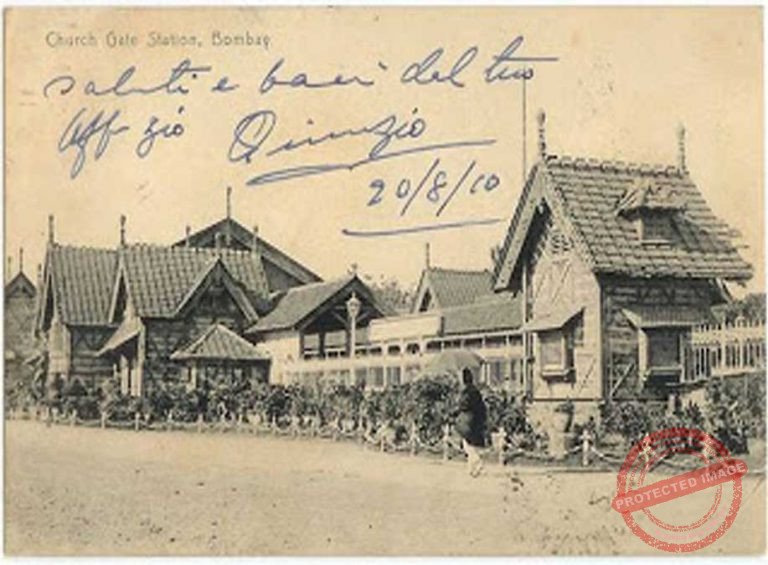 Church Gate Station, Bombay
saluti e baci del tuo
Aff zio Quinzio
20/8/10
PROTECTED IMAGE